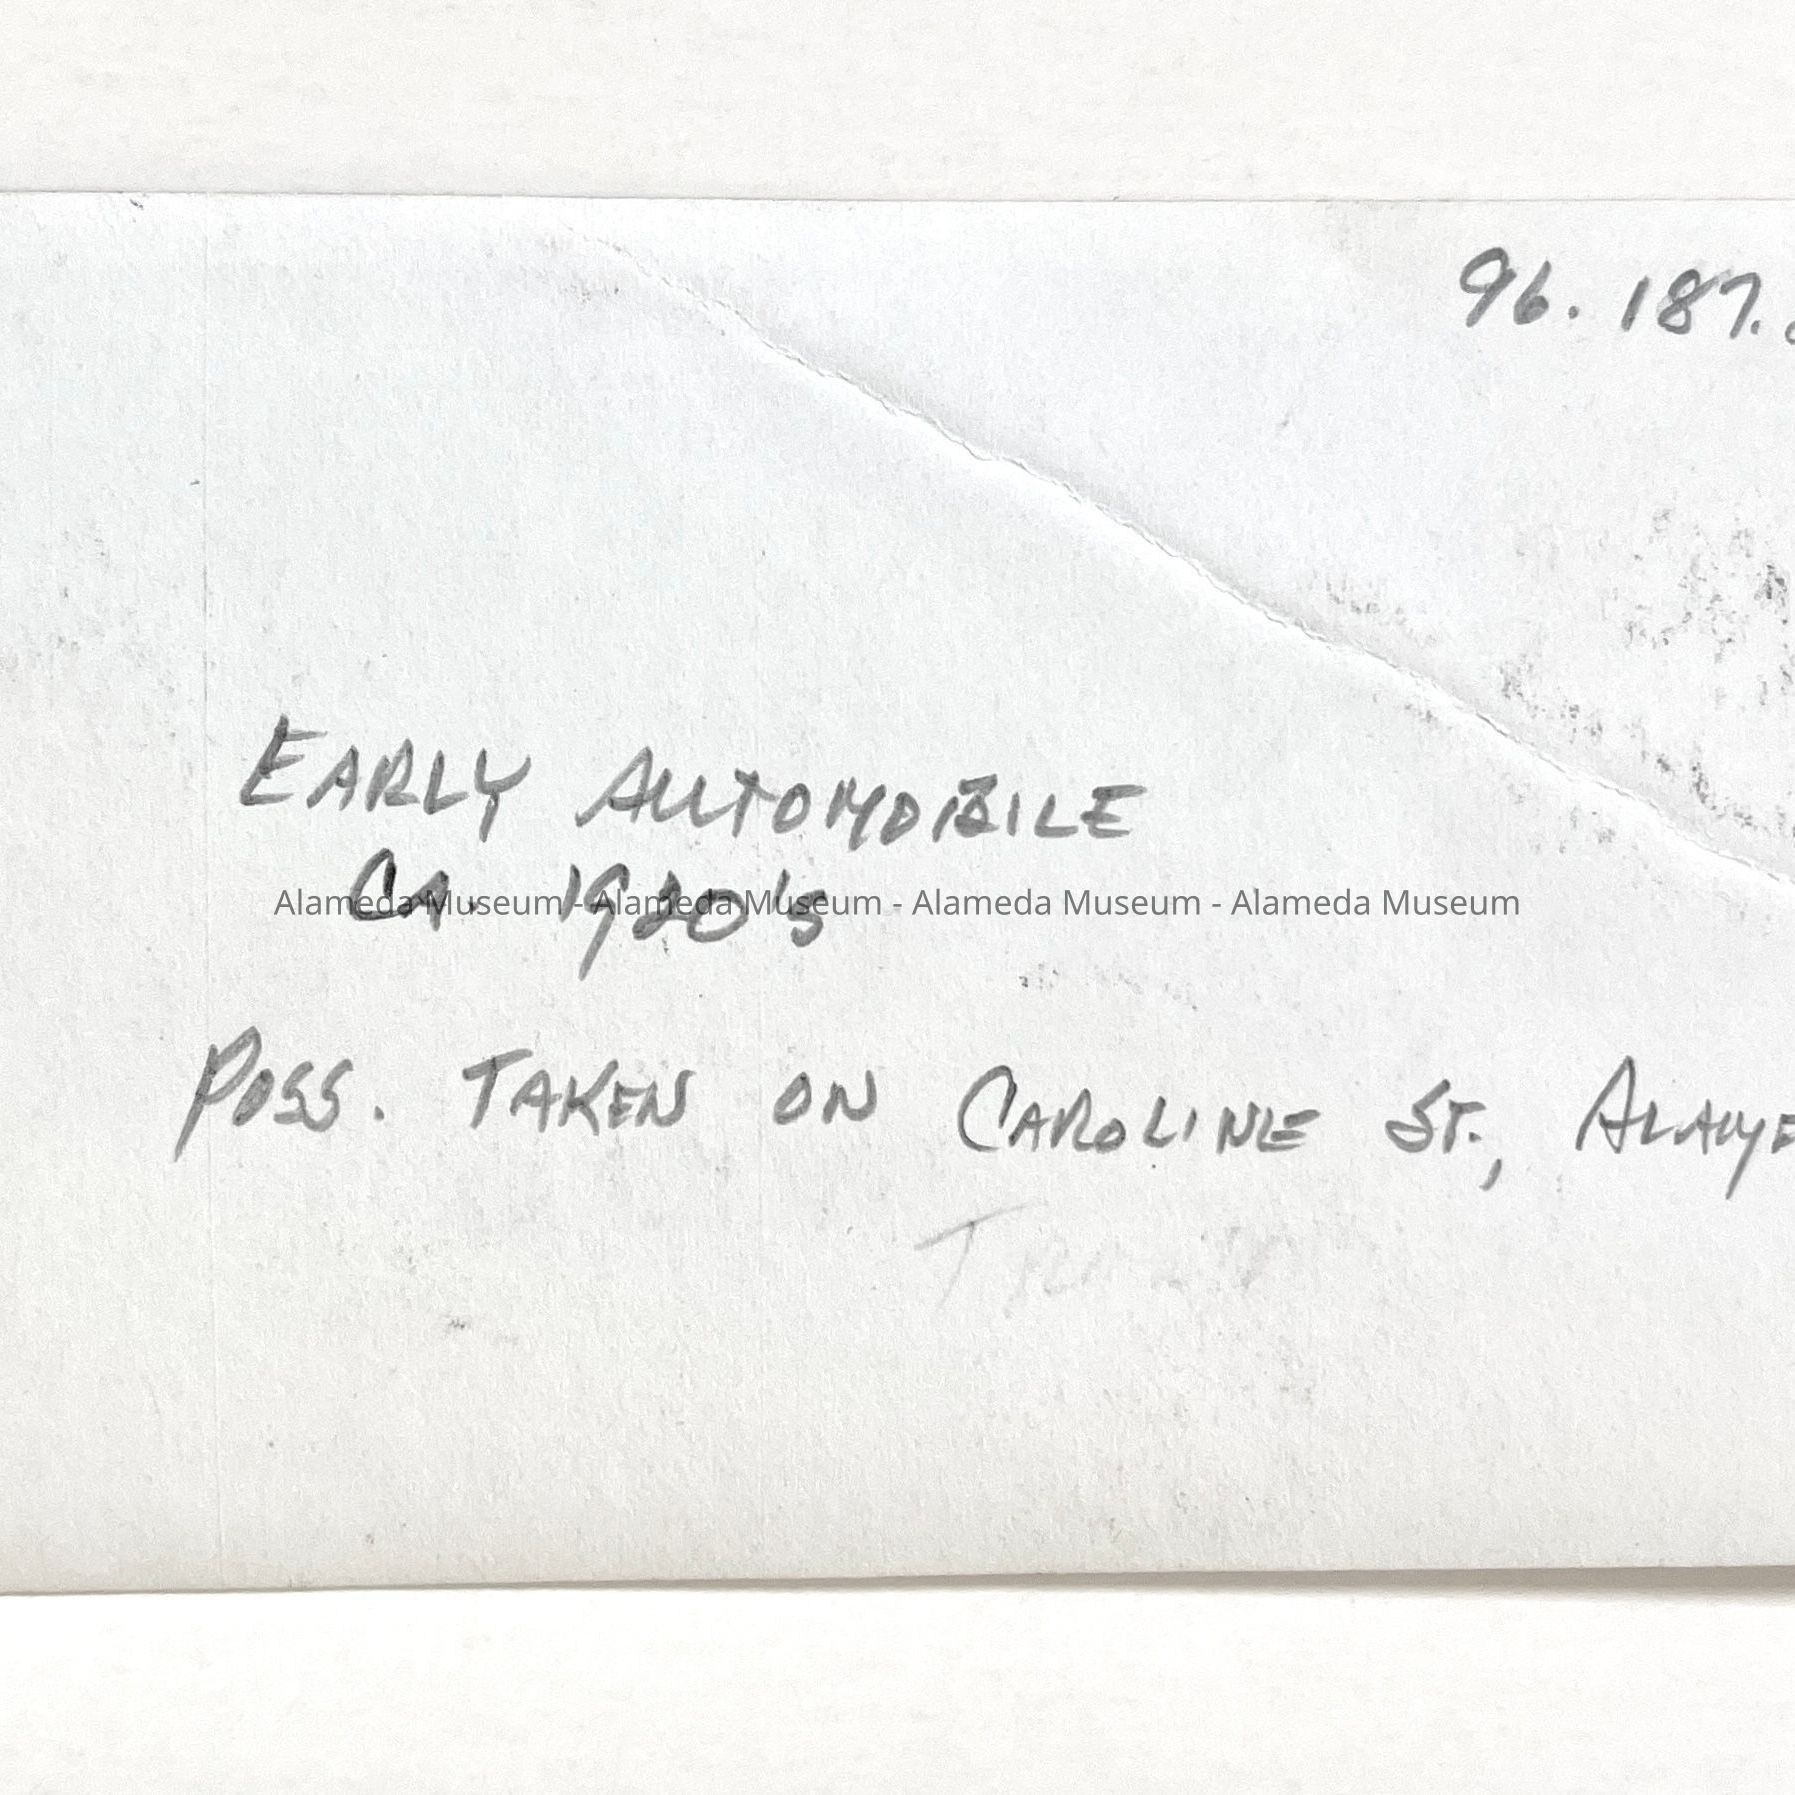 96. 187.
EARLY AUTOMOBILE
CA. 1920's
Alameda Museum - Alameda Museum - Alameda Museum - Alameda Museum
POSS. TAKEN ON CAROLINE ST., ALAME